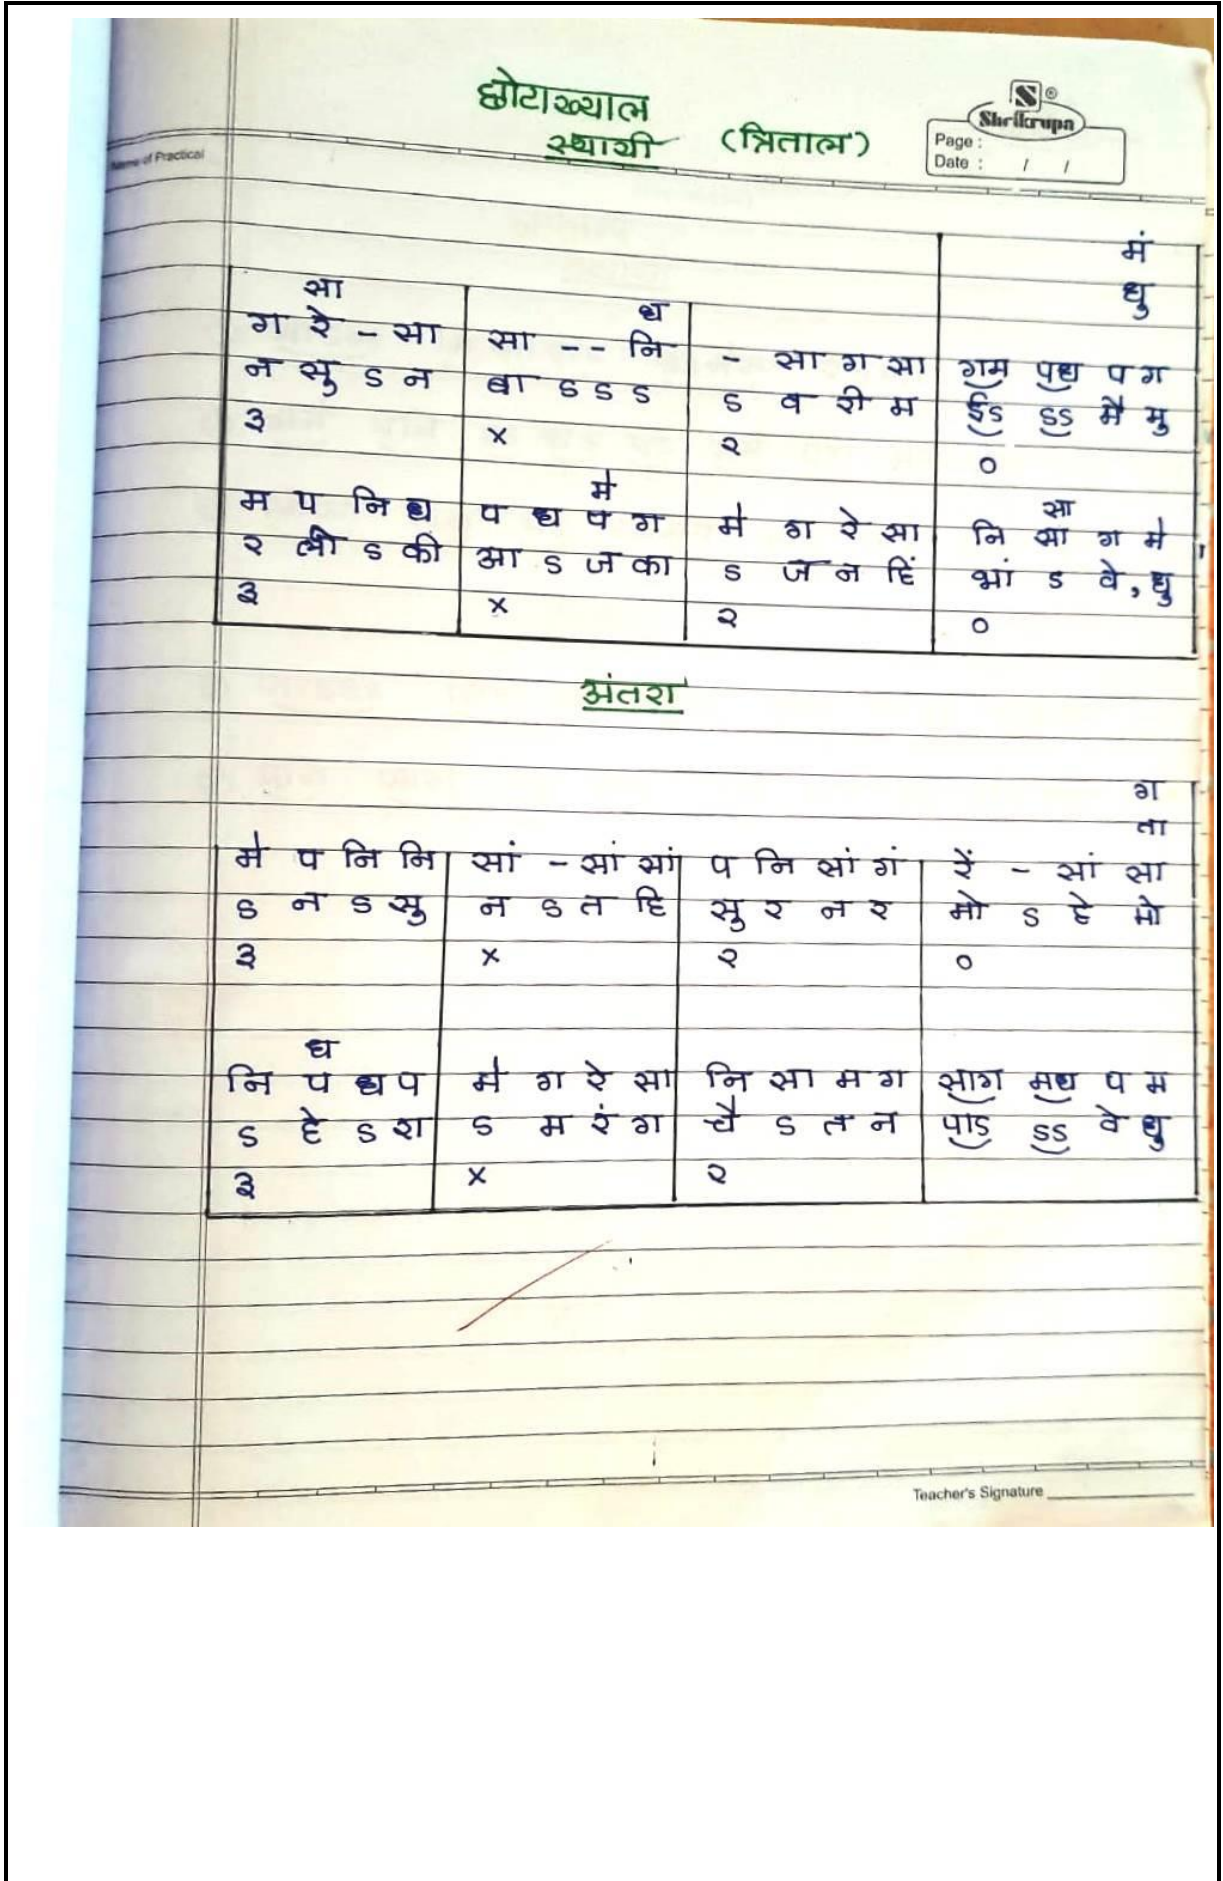 छोटाख्याल
स्थायी (त्रिताल)
Shrikrupa
Page :
Date : / /
Name of Practical
मं
धु
सा
ध
ग रे - सा सा - - नि - सा ग सा गम पध प ग
न सु ऽ न बा ऽ ऽ ऽ ऽ व री म ईऽ ऽऽ मै मु
३ x २ ०
मे सा
म प नि ध प ध प ग मे ग रे सा नि सा ग मे
र ली ऽ की आ ऽ ज का ऽ ज न हिं भां ऽ वे, धु
३ x २ ०
अंतरा
ग
ता
मे प नि नि सां - सां सां प नि सां गं रें - सां सा
ऽ न ऽ सु न ऽ त हि सु र न र मो ऽ हे मो
३ x २ ०
ध
नि प ध प मे ग रे सा नि सा म ग साग मध प म
ऽ हे ऽ श ऽ म रं ग चै ऽ त न पाऽ ऽऽ वे धु
३ x २
Teacher's Signature